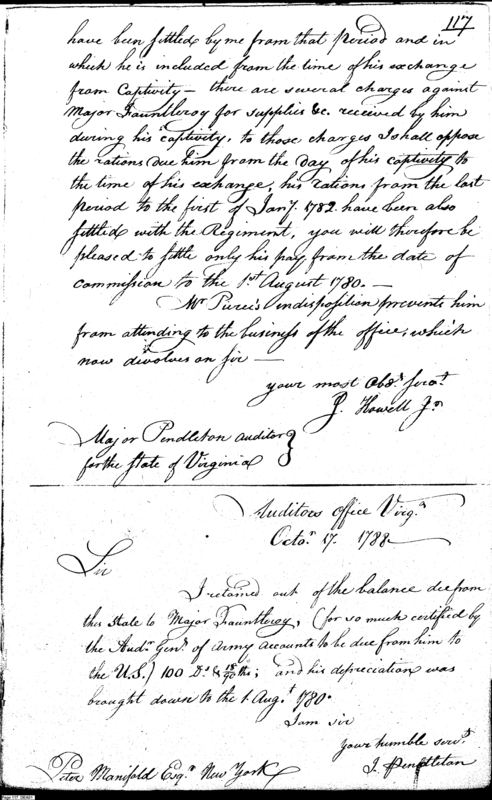 117
have been settled by me from that period and in
which he is included from the time of his exchange
from Captivity — there are several charges against
Major Fauntleroy for supplies &c. received by him
during his captivity, to those charges I shall oppose
the rations due him from the day of his captivity to
the time of his exchange, his rations from the last
period to the first of Jany. 1782 have been also
settled with the Regiment, you will therefore be
pleased to settle only his pay from the date of
commission to the 1st August 1780. —
Mr Purce's indisposition prevents him
from attending to the business of the office, which
now devolves on sir —
your most Obdt. servt.
J. Howell Jr
Major Pendleton auditor }
for the State of Virginia
Auditors office Virga.
Octor. 17. 1788
Sir
I retained out of the balance due from
this State to Major Fauntleroy, (for so much certified by
the Audr. Genl. of Army accounts to be due from him to
the U.S.) 100 Ds. & 18/90 ths; and his depreciation was
brought down to the 1 Augt. 1780.
I am sir
your humble servt.
J. Pendleton
Peter Manifold Esqr. New York